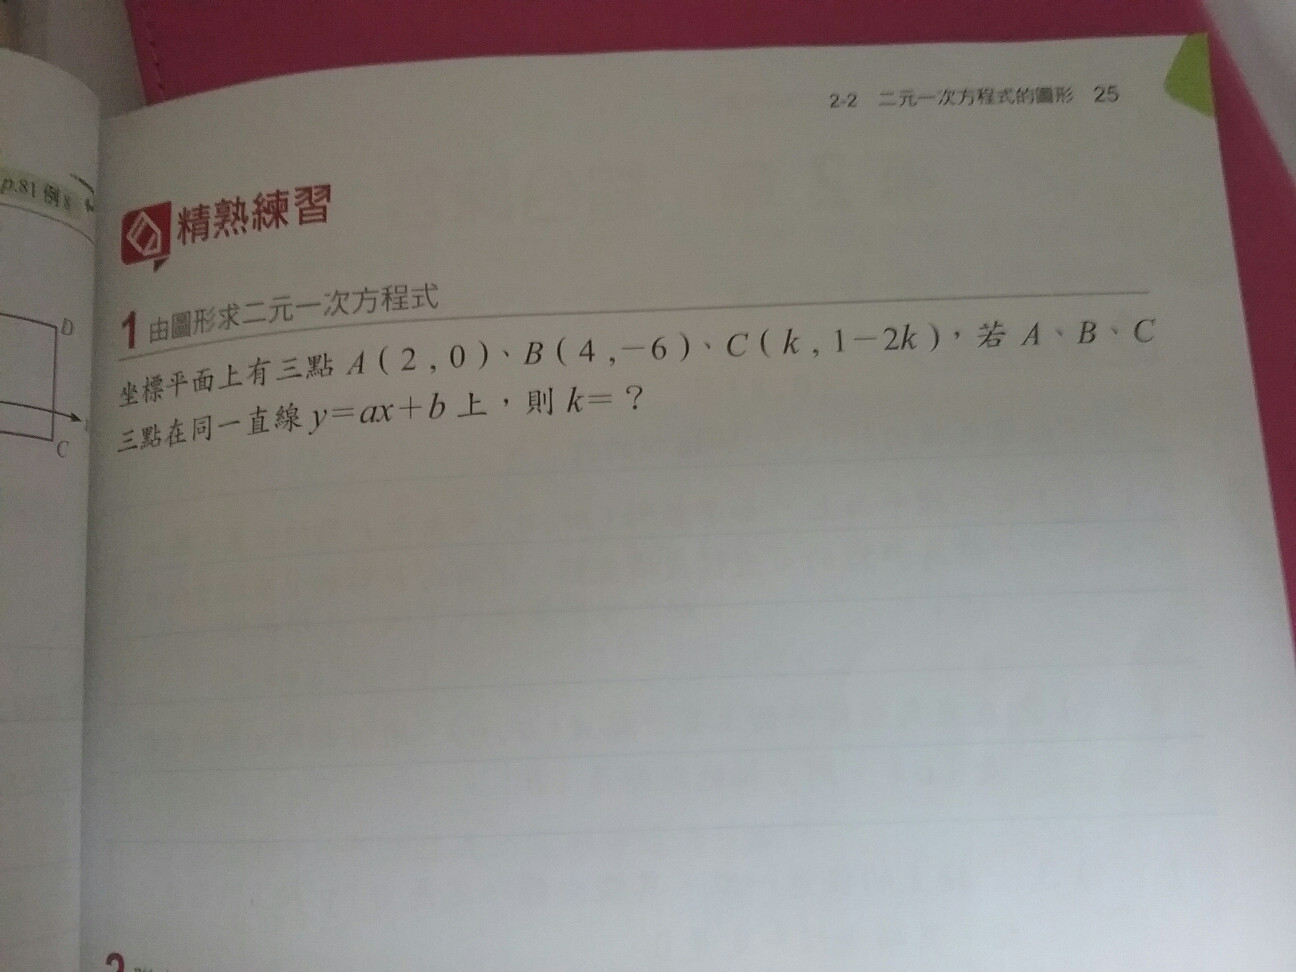 2-2 二元一次方程式的圖形 25
p.81 例8
精熟練習
1 由圖形求二元一次方程式
坐標平面上有三點 A ( 2 , 0 )、B ( 4 ,−6 )、C ( k , 1−2k )，若 A、B、C
三點在同一直線 y=ax+b 上，則 k=？
D
C
2